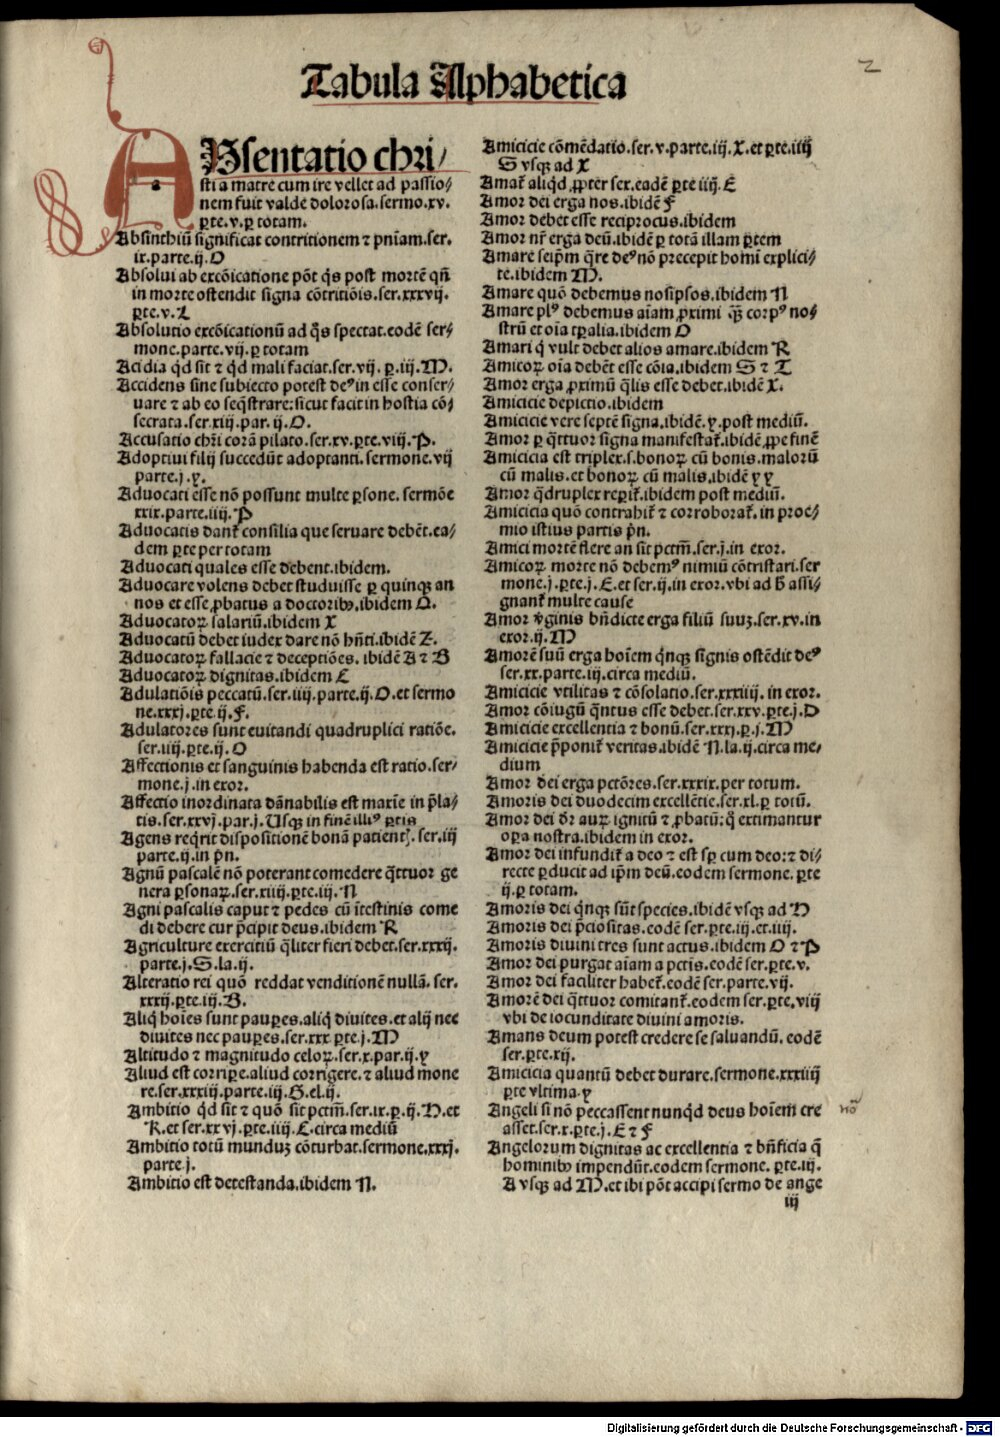 2
Tabula Alphabetica
ABsentatio chri/
sti a matre cum ire vellet ad passio/
nem fuit valde dolorosa.sermo.xv.
ꝑte.v.ꝑ totam.
Absinthiū significat contritionem ⁊ pniam.ser.
ix.parte.ij.O
Absolui ab excōicatione pōt q̄s post mortē qn̄
in morte ostendit signa cōtritiōis.ser.xxxvij.
ꝑte.v.L
Absolutio excōicationū ad q̄s spectat.eodē ser/
mone.parte.vij.ꝑ totam
Acidia qd sit ⁊ qd mali faciat.ser.vij. ꝑ.iij.M.
Accidens sine subiecto potest deꝰ in esse conser/
uare ⁊ ab eo seq̄strare:sicut facit in hostia cō/
secrata.ser.xiij.par.ij.O.
Accusatio chri corā pilato.ser.xv.ꝑte.viij.P.
Adoptiui filij succedūt adoptanti.sermone.vij
parte.j.y.
Aduocati esse nō possunt multe ꝑsone.sermōe
xxix.parte.iiij.P
Aduocatis dant̄ consilia que seruare debēt.ea/
dem ꝑte per totam
Aduocati quales esse debent.ibidem.
Aduocare volens debet studuisse ꝑ quinqꝫ an
nos et esse ꝓbatus a doctoribꝫ.ibidem Q.
Aduocatoꝝ salariū.ibidem X
Aduocatū debet iudex dare nō hn̄ti.ibidē Z.
Aduocatoꝝ fallacie ⁊ deceptiōes. ibidē A ⁊ B
Aduocatoꝝ dignitas.ibidem C
Adulatiōis peccatū.ser.iiij.parte.ij.O.et sermo
ne.xxxj.ꝑte.ij.F.
Adulatores sunt euitandi quadruplici ratiōe.
ser.iiij.ꝑte.ij.O
Affectionis et sanguinis habenda est ratio.ser/
mone.j.in exor.
Affectio inordinata dānabilis est maxie in p̄la/
tis.ser.xxvj.par.j.Usqꝫ in finē illiꝰ ꝑtis
Agens reqrit dispositionē bonā patientꝭ.ser.iij
parte.ij.in pn̄.
Agnū pascalē nō poterant comedere q̄ttuor ge
nera ꝑsonaꝝ.ser.xiiij.ꝑte.iij.N
Agni pascalis caput ⁊ pedes cū ītestinis come
di debere cur p̄cipit deus.ibidem R
Agriculture exercitiū q̄liter fieri debet.ser.xxxij.
parte.j.S.la.ij.
Alteratio rei quō reddat venditionē nullā. ser.
xxxij.ꝑte.iij.B.
Aliq̄ hoīes sunt pauꝑes.aliq̄ diuites.et alij nec
diuites nec pauꝑes.ser.xxx ꝑte.j.M
Altitudo ⁊ magnitudo celoꝝ.ser.x.par.ij.y
Aliud est corriꝑe.aliud corrigere.⁊ aliud mone
re.ser.xxxiij.parte.iij.S.el.ij.
Ambitio qd sit ⁊ quō sit pctm̄.ser.ix.ꝑ.ij.H.et
R.et ser.xxvj.ꝑte.iiij.C.circa mediū
Ambitio totū munduꝫ cōturbat.sermone.xxxj.
parte.j.
Ambitio est detestanda.ibidem N.
Amicicie cōmēdatio.ser.v.parte.iij.X.et ꝑte.iiij
S vsqꝫ ad X
Amat̄ aliqd ꝓpter ser.eadē ꝑte iiij.E
Amor dei erga nos.ibidē F
Amor debet esse reciprocus.ibidem
Amor nr̄ erga deū.ibidē ꝑ totā illam ꝑtem
Amare seipm̄ q̄re deꝰ nō precepit homī explici/
te.ibidem M.
Amare quō debemus nosipsos.ibidem N
Amare plꝰ debemus aīam ꝓximi q̄ꝫ corpꝰ no/
strū et oīa tꝑalia.ibidem O
Amari q̄ vult debet alios amare.ibidem R
Amicoꝝ oīa debēt esse cōia.ibidem S ⁊ T
Amor erga ꝓximū q̄lis esse debet.ibidē X.
Amicicie depictio.ibidem
Amicicie vere septē signa.ibidē.y.post mediū.
Amor ꝑ q̄ttuor signa manifestat̄.ibidē.ꝓpe finē
Amicicia est triplex.s.bonoꝝ cū bonis.malorū
cū malis.et bonoꝝ cū malis.ibidē y y
Amor q̄druplex reꝑit̄.ibidem post mediū.
Amicicia quō contrahit̄ ⁊ corroborat̄.in proe/
mio istius partis pn̄.
Amici mortē flere an sit pctm̄.ser.j.in exor.
Amicoꝝ morte nō debemꝰ nimiū cōtristari.ser
mone.j.ꝑte.j.E.et ser.ij.in exor.vbi ad h̄ assi/
gnant̄ multe cause
Amor v̄ginis bn̄dicte erga filiū suuꝫ.ser.xv.in
exor.ij.M
Amorē suū erga hoīem qnqꝫ signis ostēdit deꝰ
ser.xx.parte.iij.circa mediū.
Amicicie vtilitas ⁊ cōsolatio.ser.xxxiiij.in exor.
Amor cōiugū q̄ntus esse debet.ser.xxv.ꝑte.j.D
Amicicie excellentia ⁊ bonū.ser.xxxj.ꝑ.j.M
Amicicie p̄ponit̄ veritas.ibidē N.la.ij.circa me/
dium
Amor dei erga pctōres.ser.xxxix.per totum.
Amoris dei duodecim excellētie.ser.xl.ꝑ totū.
Amor dei dr̄ auꝝ ignitū ⁊ ꝓbatū:q̄ extimantur
oꝑa nostra.ibidem in exor.
Amor dei infundit̄ a deo ⁊ est sꝑ cum deo:⁊ di/
recte ꝑducit ad ipm̄ deū.eodem sermone.ꝑte
ij.ꝑ totam.
Amoris dei qnqꝫ sūt species.ibidē vsqꝫ ad H
Amoris dei p̄ciositas.eodē ser.ꝑte.iij.et.iiij.
Amoris diuini tres sunt actus.ibidem O ⁊ P
Amor dei purgat aīam a pctis.eodē ser.ꝑte.v.
Amor dei faciliter habet̄.eodē ser.parte.vij.
Amorē dei q̄ttuor comitant̄.eodem ser.ꝑte.viij
vbi de iocunditate diuini amoris.
Amans deum potest credere se saluandū. eodē
ser.ꝑte.xij.
Amicicia quantū debet durare.sermone.xxxiiij
ꝑte vltima.y
Angeli si nō peccassent nunqd deus hoīem cre
asset.ser.x.ꝑte.j.E ⁊ F
no
Angelorum dignitas ac excellentia ⁊ bn̄ficia q̄
hominibꝫ impendūt.eodem sermone. ꝑte.iij.
A vsqꝫ ad M.et ibi pōt accipi sermo de ange
iij
Digitalisierung gefördert durch die Deutsche Forschungsgemeinschaft - DFG